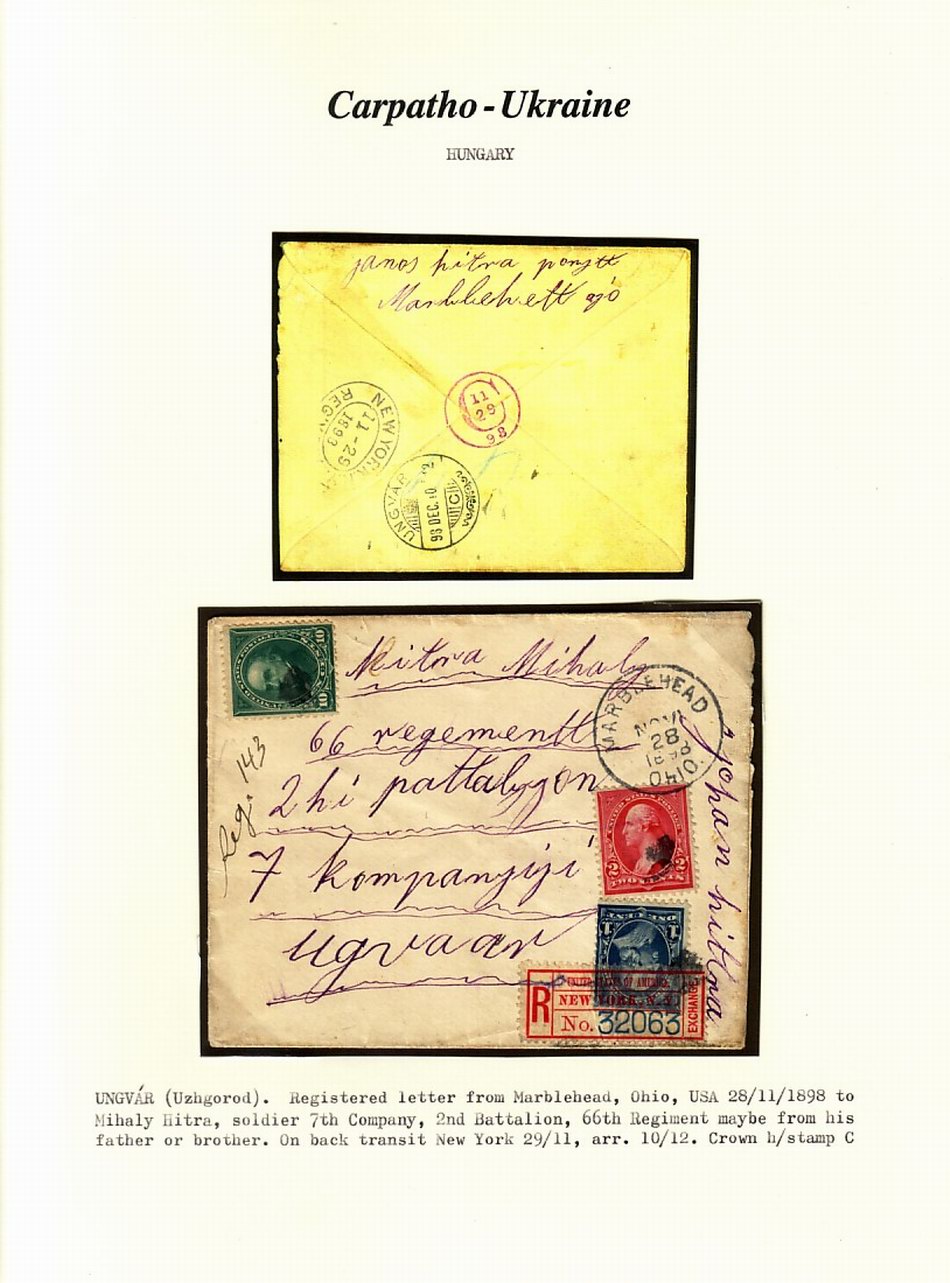 Carpatho-Ukraine
HUNGARY
janos hitra
Marblehett
NEW YORK
11-29
1898
REG'
11
29
98
UNGVÁR
98 DEC. 10
C
10 10
Hitra Mihaly
66 regementt
2hi pattalyon
7 kompanyiji
ugvaar
Reg. 143
MARBLEHEAD
NOV
28
1898
OHIO.
johan hitra
UNITED STATES POSTAGE
2 2
TWO CENTS
1 1
ONE CENT
R
UNITED STATES OF AMERICA.
NEW YORK, N.Y.
No. 32063
EXCHANGE
UNGVÁR (Uzhgorod). Registered letter from Marblehead, Ohio, USA 28/11/1898 to
Mihaly Hitra, soldier 7th Company, 2nd Battalion, 66th Regiment maybe from his
father or brother. On back transit New York 29/11, arr. 10/12. Crown h/stamp C